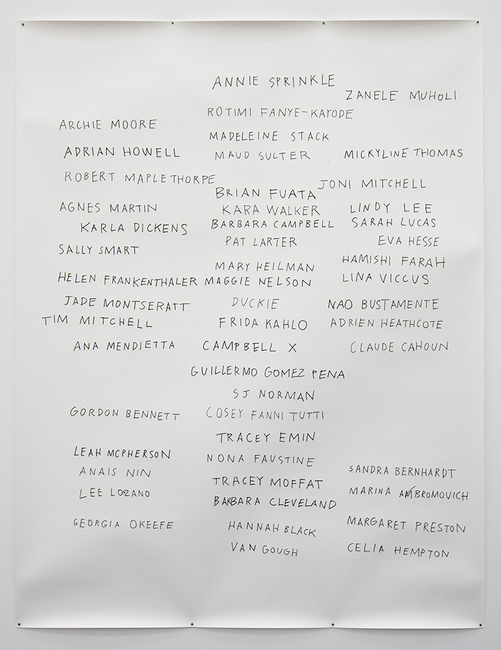 ANNIE SPRINKLE
ZANELE MUHOLI
ROTIMI FANYE-KAYODE
ARCHIE MOORE
MADELEINE STACK
ADRIAN HOWELL MAUD SULTER MICKYLINE THOMAS
ROBERT MAPLETHORPE
BRIAN FUATA JONI MITCHELL
AGNES MARTIN KARA WALKER LINDY LEE
KARLA DICKENS BARBARA CAMPBELL SARAH LUCAS
PAT LARTER EVA HESSE
SALLY SMART
MARY HEILMAN HAMISHI FARAH
HELEN FRANKENTHALER MAGGIE NELSON LINA VICCUS
JADE MONTSERATT DUCKIE NAO BUSTAMENTE
TIM MITCHELL FRIDA KAHLO ADRIEN HEATHCOTE
ANA MENDIETTA CAMPBELL X CLAUDE CAHOUN
GUILLERMO GOMEZ PENA
SJ NORMAN
GORDON BENNETT COSEY FANNI TUTTI
TRACEY EMIN
LEAH MCPHERSON NONA FAUSTINE
ANAIS NIN SANDRA BERNHARDT
LEE LOZANO TRACEY MOFFAT MARINA ABROMOVICH
BARBARA CLEVELAND
GEORGIA OKEEFE HANNAH BLACK MARGARET PRESTON
VAN GOUGH CELIA HEMPTON